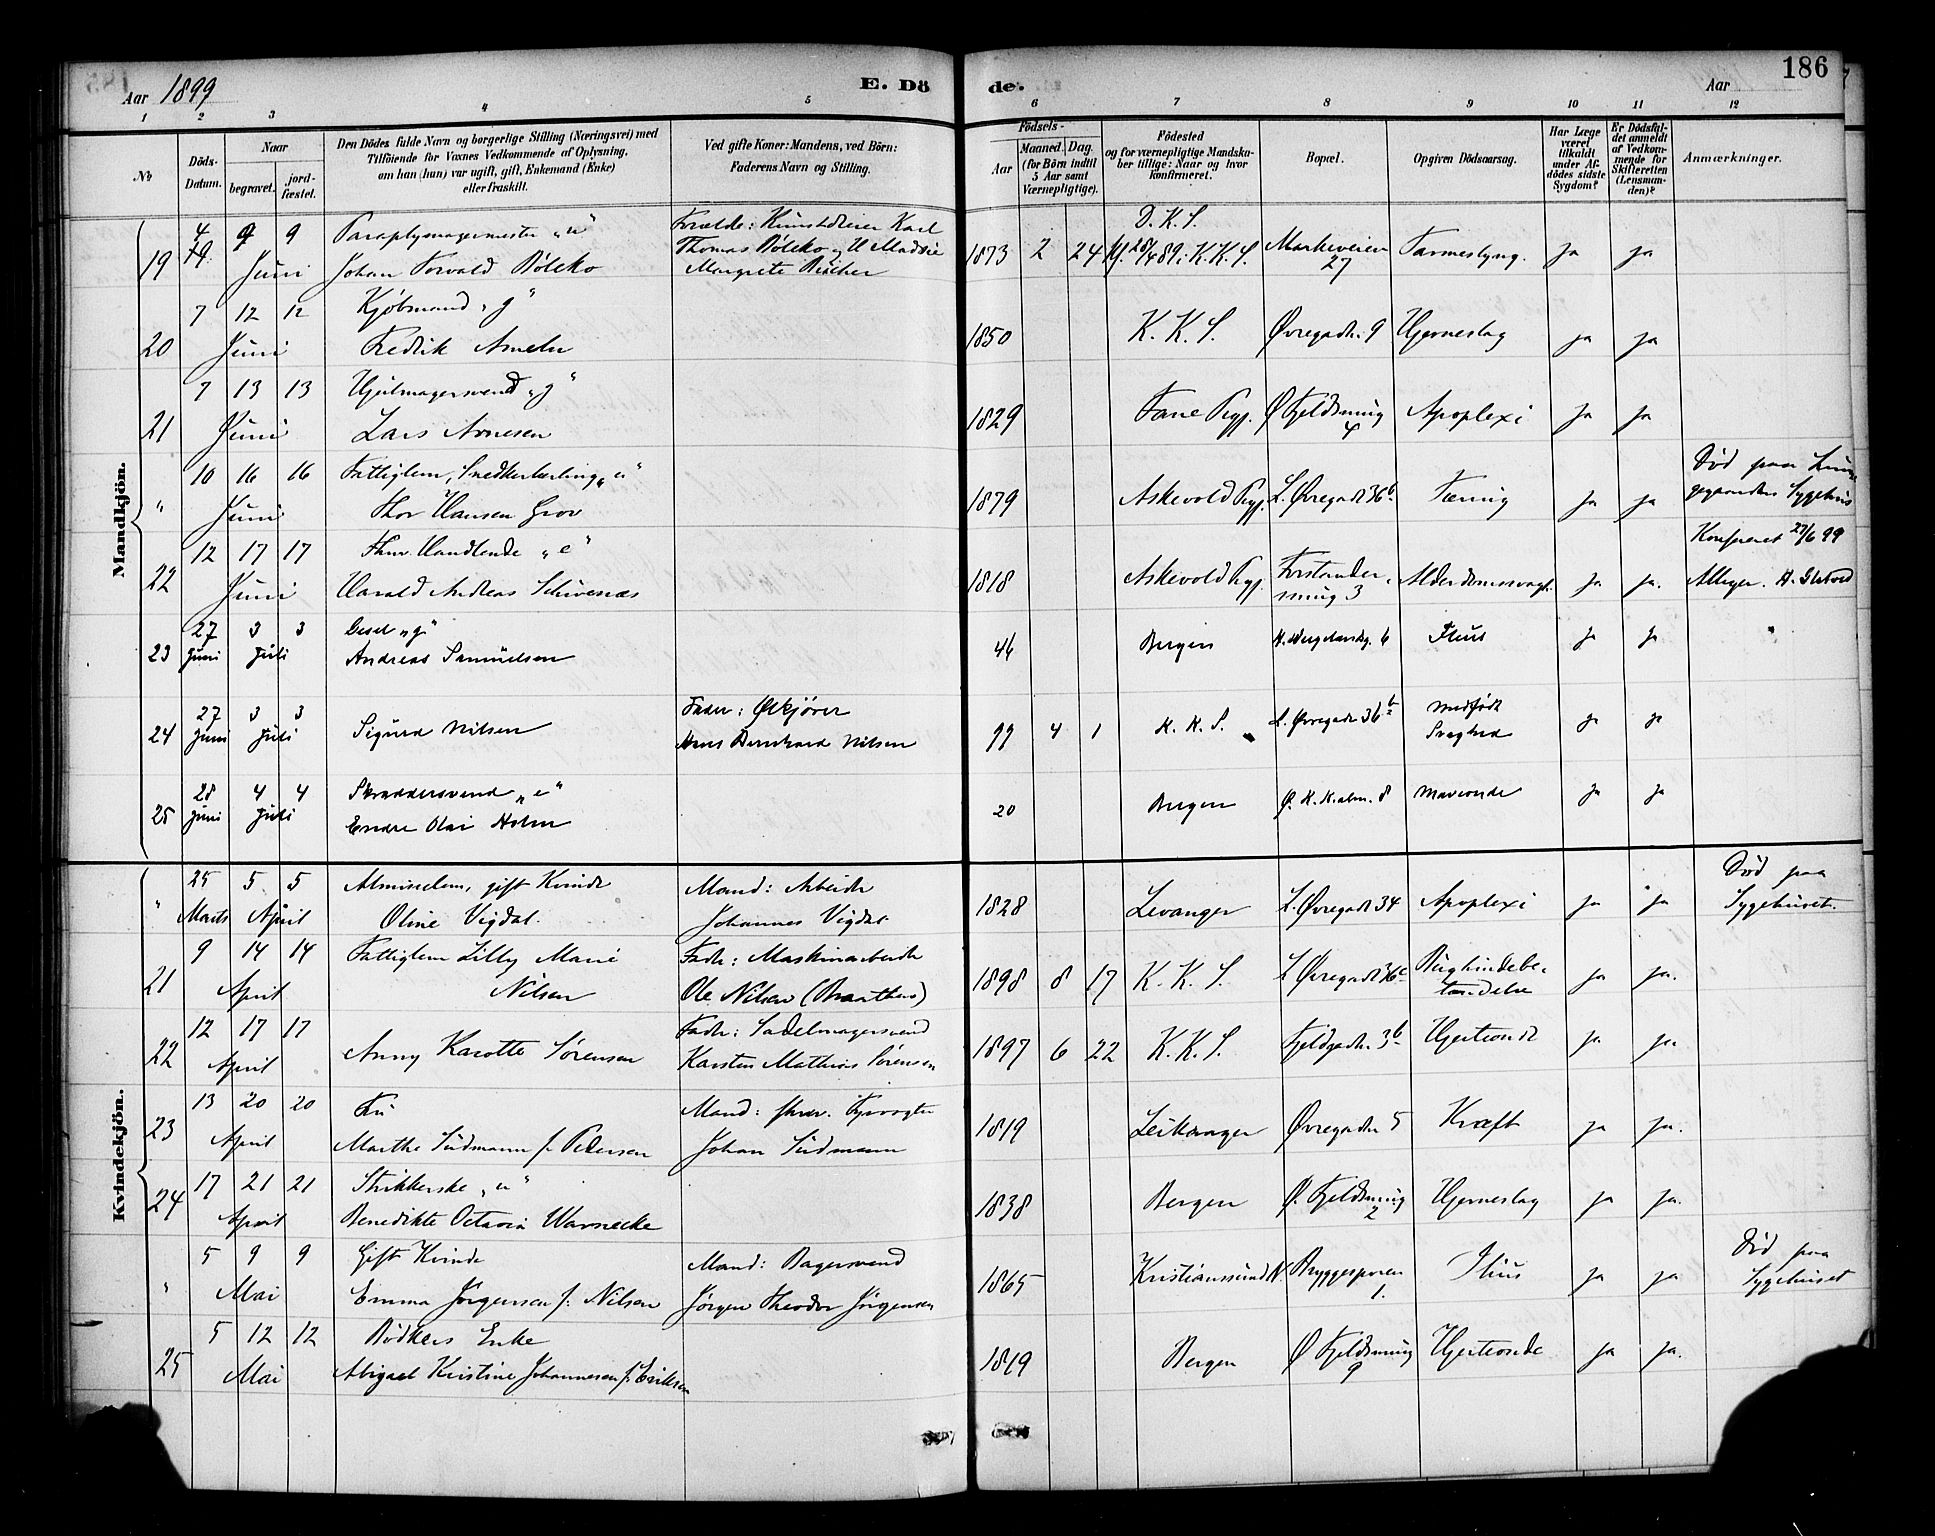 Aar 1899
E. Dö
de.
Aar
186
1 2 3 4 5 6 7 8 9 10 11 12
No
Döds-Datum.
Naar
begravet.
jord-fæstet.
Den Dödes fulde Navn og borgerlige Stilling (Næringsvei) med
Tilföiende for Voxnes Vedkommende af Oplysning,
om han (hun) var ugift, gift, Enkemand (Enke)
eller fraskilt.
Ved gifte Koner: Mandens, ved Börn:
Faderens Navn og Stilling.
Födsels-
Aar
Maaned. Dag.
(for Börn indtil
5 Aar samt
Værnepligtige).
Födested
og for værnepligtige Mandska-
ber tillige: Naar og hvor
konfirmeret.
Bopæl.
Opgiven Dödsaarsag.
Har Læge
været
tilkaldt
under Af-
dödes sidste
Sygdom?
Er Dödsfal-
det anmeldt
af Vedkom-
mende for
Skifteretten
(Lensman-
den)?
Anmærkninger.
Mandkjön.
4 9 9 Paraplymagermester „u“
19 Juni Johan Torvald
Thomas
Margrete
D. K. S.
1873 2 24 K. K. S. Markeveien 27 ja ja
7 12 12 Kjöbmand „g“
20 Juni Fredrik
1850 K. K. S. Øvregadn. 9 Hjerneslag ja ja
7 13 13 Hjulmagersvend „g“
21 Juni Lars Arnesen
1829 Fane Pgj. Ø Fjeldsmug 4 Apoplexi ja ja
10 16 16 Fattiglem, Snedkerlærling „u“
" Juni Thor Hansen Grov
1879 Askevold Pgj. L. Øvregadn 36b Tæring ja ja
Død paa
Sygehus
12 17 17 Handlende „e“
22 Juni Harald Andreas
1818 Askevold Pgj. Forstander-
smug 3 ja ja.
27/6 99
27 3 3 „g“
23 Juni Juli Andreas Samuelsen
46 Bergen 6 ja ja
27 3 3
24 Juni Juli Sigurd Nilsen
Fader: Ølkjører
Hans Bernhard Nilsen
99 4 1 K. K. S. L. Øvregadn 36b Medfødt
Svaghed ja ja
28 4 4 Skræddersvend „e“
25 Juni Juli Endre Olai Holm
20 Bergen 8 Mavesonde ja ja
Kvindekjön.
25 5 5 Almisselem, gift Kvinde
" Marts April Oline Vigdal.
Mand: Arbeider
Johannes Vigdal
1828 Levanger L. Øvregadn 34 Apoplexi ja ja
Død paa
Sygehuset.
9 14 14 Fattiglem Lilly Marie
21 April Nilsen
Fader: Maskinarbeider
Ole Nilsen
1898 8 17 K. K. S. L Øvregadn 36 Bughindebe-
tændelse ja ja.
12 17 17
22 April Anny Karotte Sørensen
Fader: Sadelmagersvend
Karsten Mathias Sørensen
1897 6 22 K. K. S. Fjeldgadn. 3b Hjerteonde ja ja.
13 20 20 Fru
23 April Marthe Südmann f. Pedersen
Mand: Fyrvogter
Johan Südmann
1819 Leikanger Øvregadn 5 Kræft ja ja.
17 21 21 Strikkerske „u“
24 April Benedikte Octavia Warnecke
1838 Bergen Ø. Fjeldsmug 2 Hjerneslag ja ja.
5 9 9 Gift Kvinde
" Mai Emma Jørgensen f. Nilsen
Mand: Bagersvend
Jørgen Theodor Jørgensen
1865 Kristianssund N. Bryggesporen 1. Ileus ja ja
Død paa
Sygehuset
5 12 12 Bødkers Enke
25 Mai Abigael Kristine Johannesen f. Eriksen
1819 Bergen Ø Fjeldsmug 9 Hjerteonde ja ja.